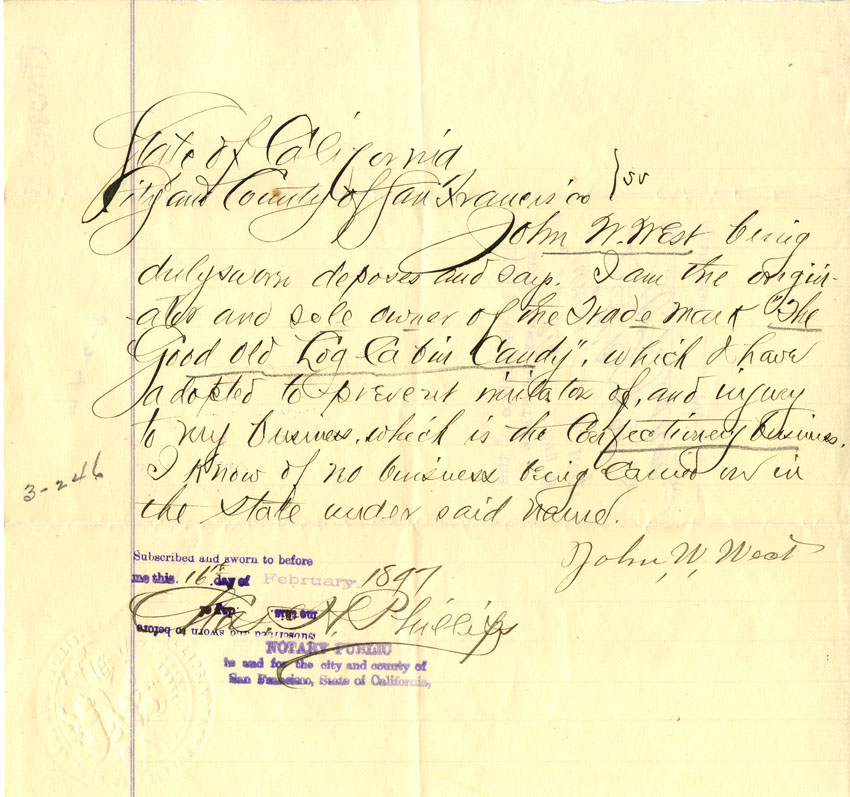 State of California
City and County of San Francisco } ss
John W. West being
duly sworn deposes and says. I am the origin-
-ator and sole owner of the Trade Mark "The
Good old Log Cabin Candy", which I have
adopted to prevent imitation of, and injury
to my business, which is the Confectionery business.
I know of no business being carried on in
the State under said name.
3-246
John W. West
Subscribed and sworn to before
me this 16th day of February 1897
Chas. H. Phillips
day of me this
Subscribed and sworn to before
NOTARY PUBLIC
in and for the city and county of
San Francisco, State of California,